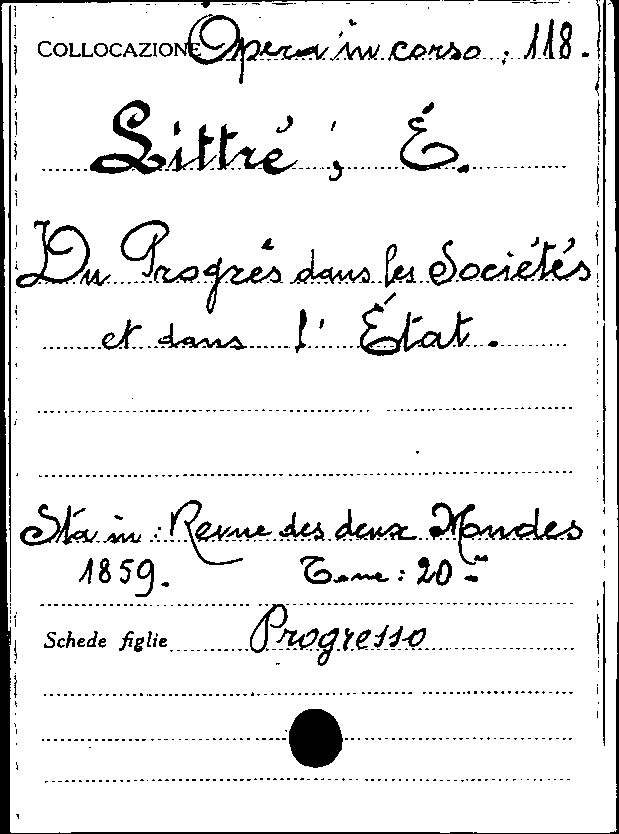 COLLOCAZIONE Opera in corso : 118.
Littré, É.
Du Progrès dans les Sociétés
et dans l'État.
Sta in : Revue des deux Mondes
1859. Tome : 20 -
Schede figlie Progresso